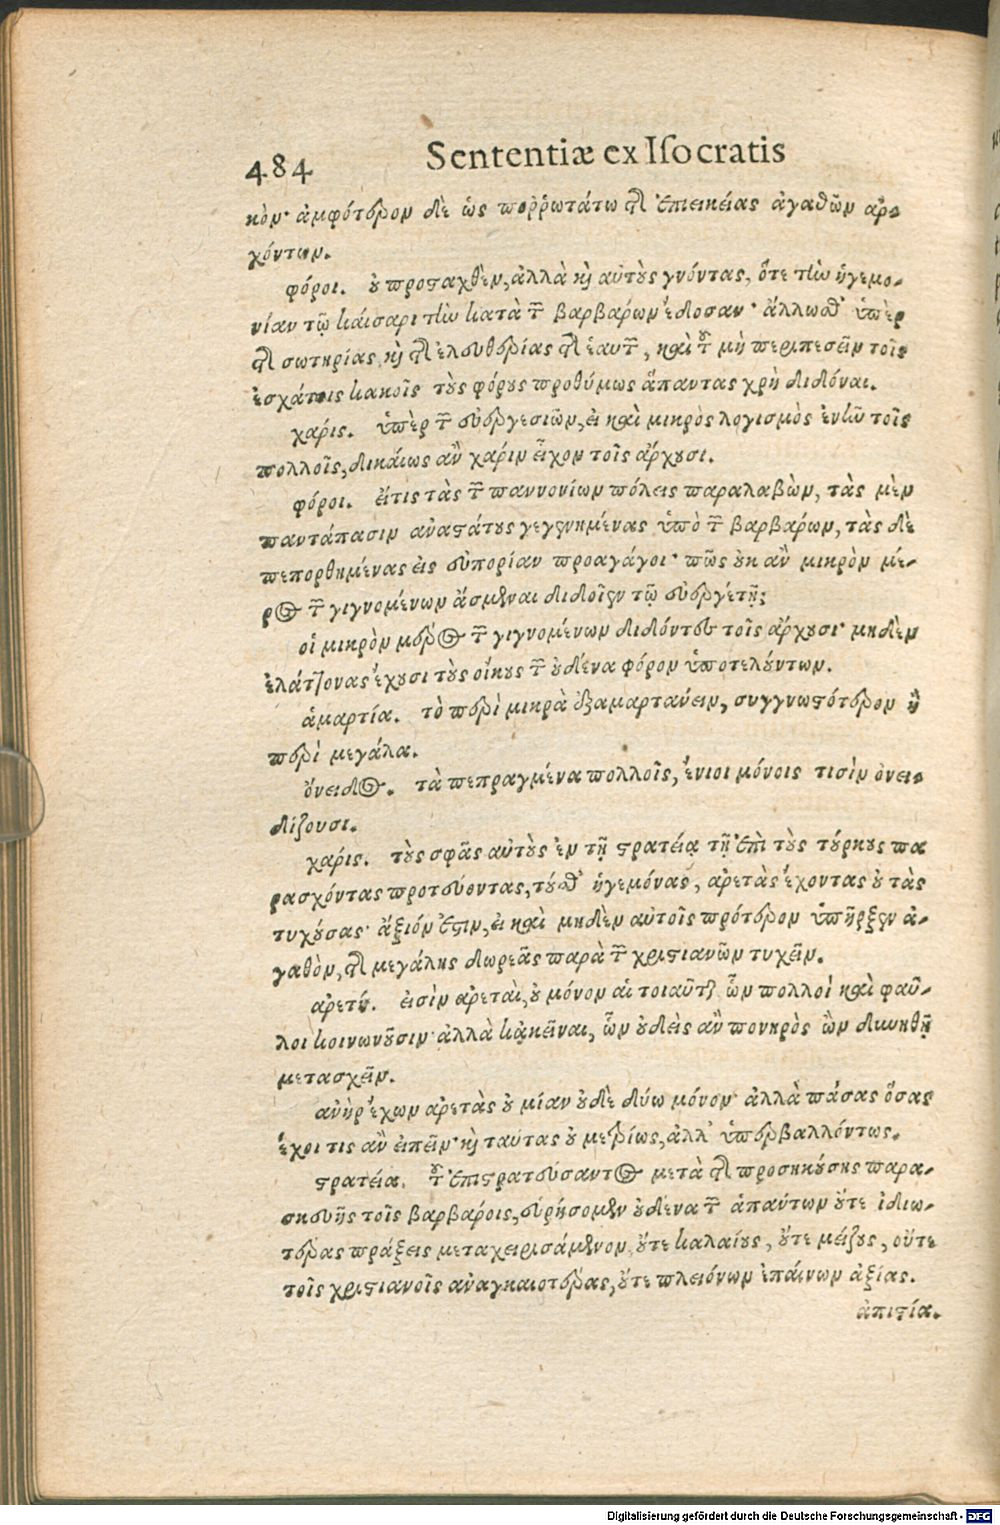 484 Sententiæ ex Iſocratis
κὸν· ἀμφότερον δὲ ὡς ποῤῥωτάτω τῆς ἐπιεικείας ἀγαθῶν ἀρ-
χόντων.
φόροι. οὐ προσαχθὲν, ἀλλὰ καὶ αὐτοὺς γνόντας, ὅτε τὴν ἡγεμο-
νίαν τῷ καίσαρι τὴν κατὰ τῶν βαρβάρων ἔδοσαν· ἄλλωσθ' ὑπὲρ
τῆς σωτηρίας, καὶ τῆς ἐλευθερίας τῆς ἑαυτῶν, καὶ τοῦ μὴ περιπεσεῖν τοῖς
ἐσχάτοις κακοῖς τοὺς φόρους προθύμως ἅπαντας χρὴ διδόναι.
χάρις. ὑπὲρ τῶν εὐεργεσιῶν, εἰ καὶ μικρὸς λογισμὸς ἐνῆν τοῖς
πολλοῖς, δικαίως ἂν χάριν εἶχον τοῖς ἄρχουσι.
φόροι. εἴτις τὰς τῶν παννονίων πόλεις παραλαβὼν, τὰς μὲν
παντάπασιν ἀναστάτους γεγενημένας ὑπὸ τῶν βαρβάρων, τὰς δὲ
πεπορθημένας εἰς εὐπορίαν προαγάγοι· πῶς οὐκ ἂν μικρὸν μέ-
ρος τῶν γιγνομένων ἀσμέναι διδοῖεν τῷ εὐεργέτῃ;
οἱ μικρὸν μέρος τῶν γιγνομένων διδόντες τοῖς ἄρχουσι· μηδὲν
ἐλάττονας ἔχουσι τοὺς οἴκους τῶν οὐδένα φόρον ὑποτελούντων.
ἁμαρτία. τὸ περὶ μικρὰ ἐξαμαρτάνειν, συγγνωστότερον ἢ
περὶ μεγάλα.
ὄνειδος. τὰ πεπραγμένα πολλοῖς, ἔνιοι μόνοις τισὶν ὀνει-
δίζουσι.
χάρις. τοὺς σφᾶς αὐτοὺς ἐν τῇ στρατείᾳ τῇ ἐπὶ τοὺς τύρκους πα
ρασχόντας προτεύοντας, τούσθ' ἡγεμόνας, ἀρετὰς ἔχοντας οὐ τὰς
τυχούσας· ἄξιόν ἐστιν, εἰ καὶ μηδὲν αὐτοῖς πρότερον ὑπῆρξεν ἀ-
γαθὸν, τῆς μεγάλης δωρεᾶς παρὰ τῶν χριστιανῶν τυχεῖν.
ἀρετή. εἰσὶν ἀρεταὶ, οὐ μόνον αἱ τοιαῦται ὧν πολλοὶ καὶ φαῦ-
λοι κοινωνοῦσιν· ἀλλὰ κᾀκεῖναι, ὧν οὐδεὶς ἂν πονηρὸς ὢν δυνηθῇ
μετασχεῖν.
ἀνὴρ ἔχων ἀρετὰς οὐ μίαν οὐδὲ δύω μόνον· ἀλλὰ πάσας ὅσας
ἔχοι τις ἂν εἰπεῖν· καὶ ταύτας οὐ μετρίως, ἀλλ' ὑπερβαλλόντως.
στρατεία. τοῦ ἐπιστρατεύσαντος μετὰ τῆς προσηκούσης παρα-
σκευῆς τοῖς βαρβάροις, εὑρήσομεν οὐδένα τῶν ἁπάντων οὔτε ἰδιω-
τέρας πράξεις μεταχειρισάμενον, οὔτε καλλίους, οὔτε μείζους, οὔτε
τοῖς χριστιανοῖς ἀναγκαιοτέρας, οὔτε πλειόνων ἐπαίνων ἀξίας.
ἀπιστία.